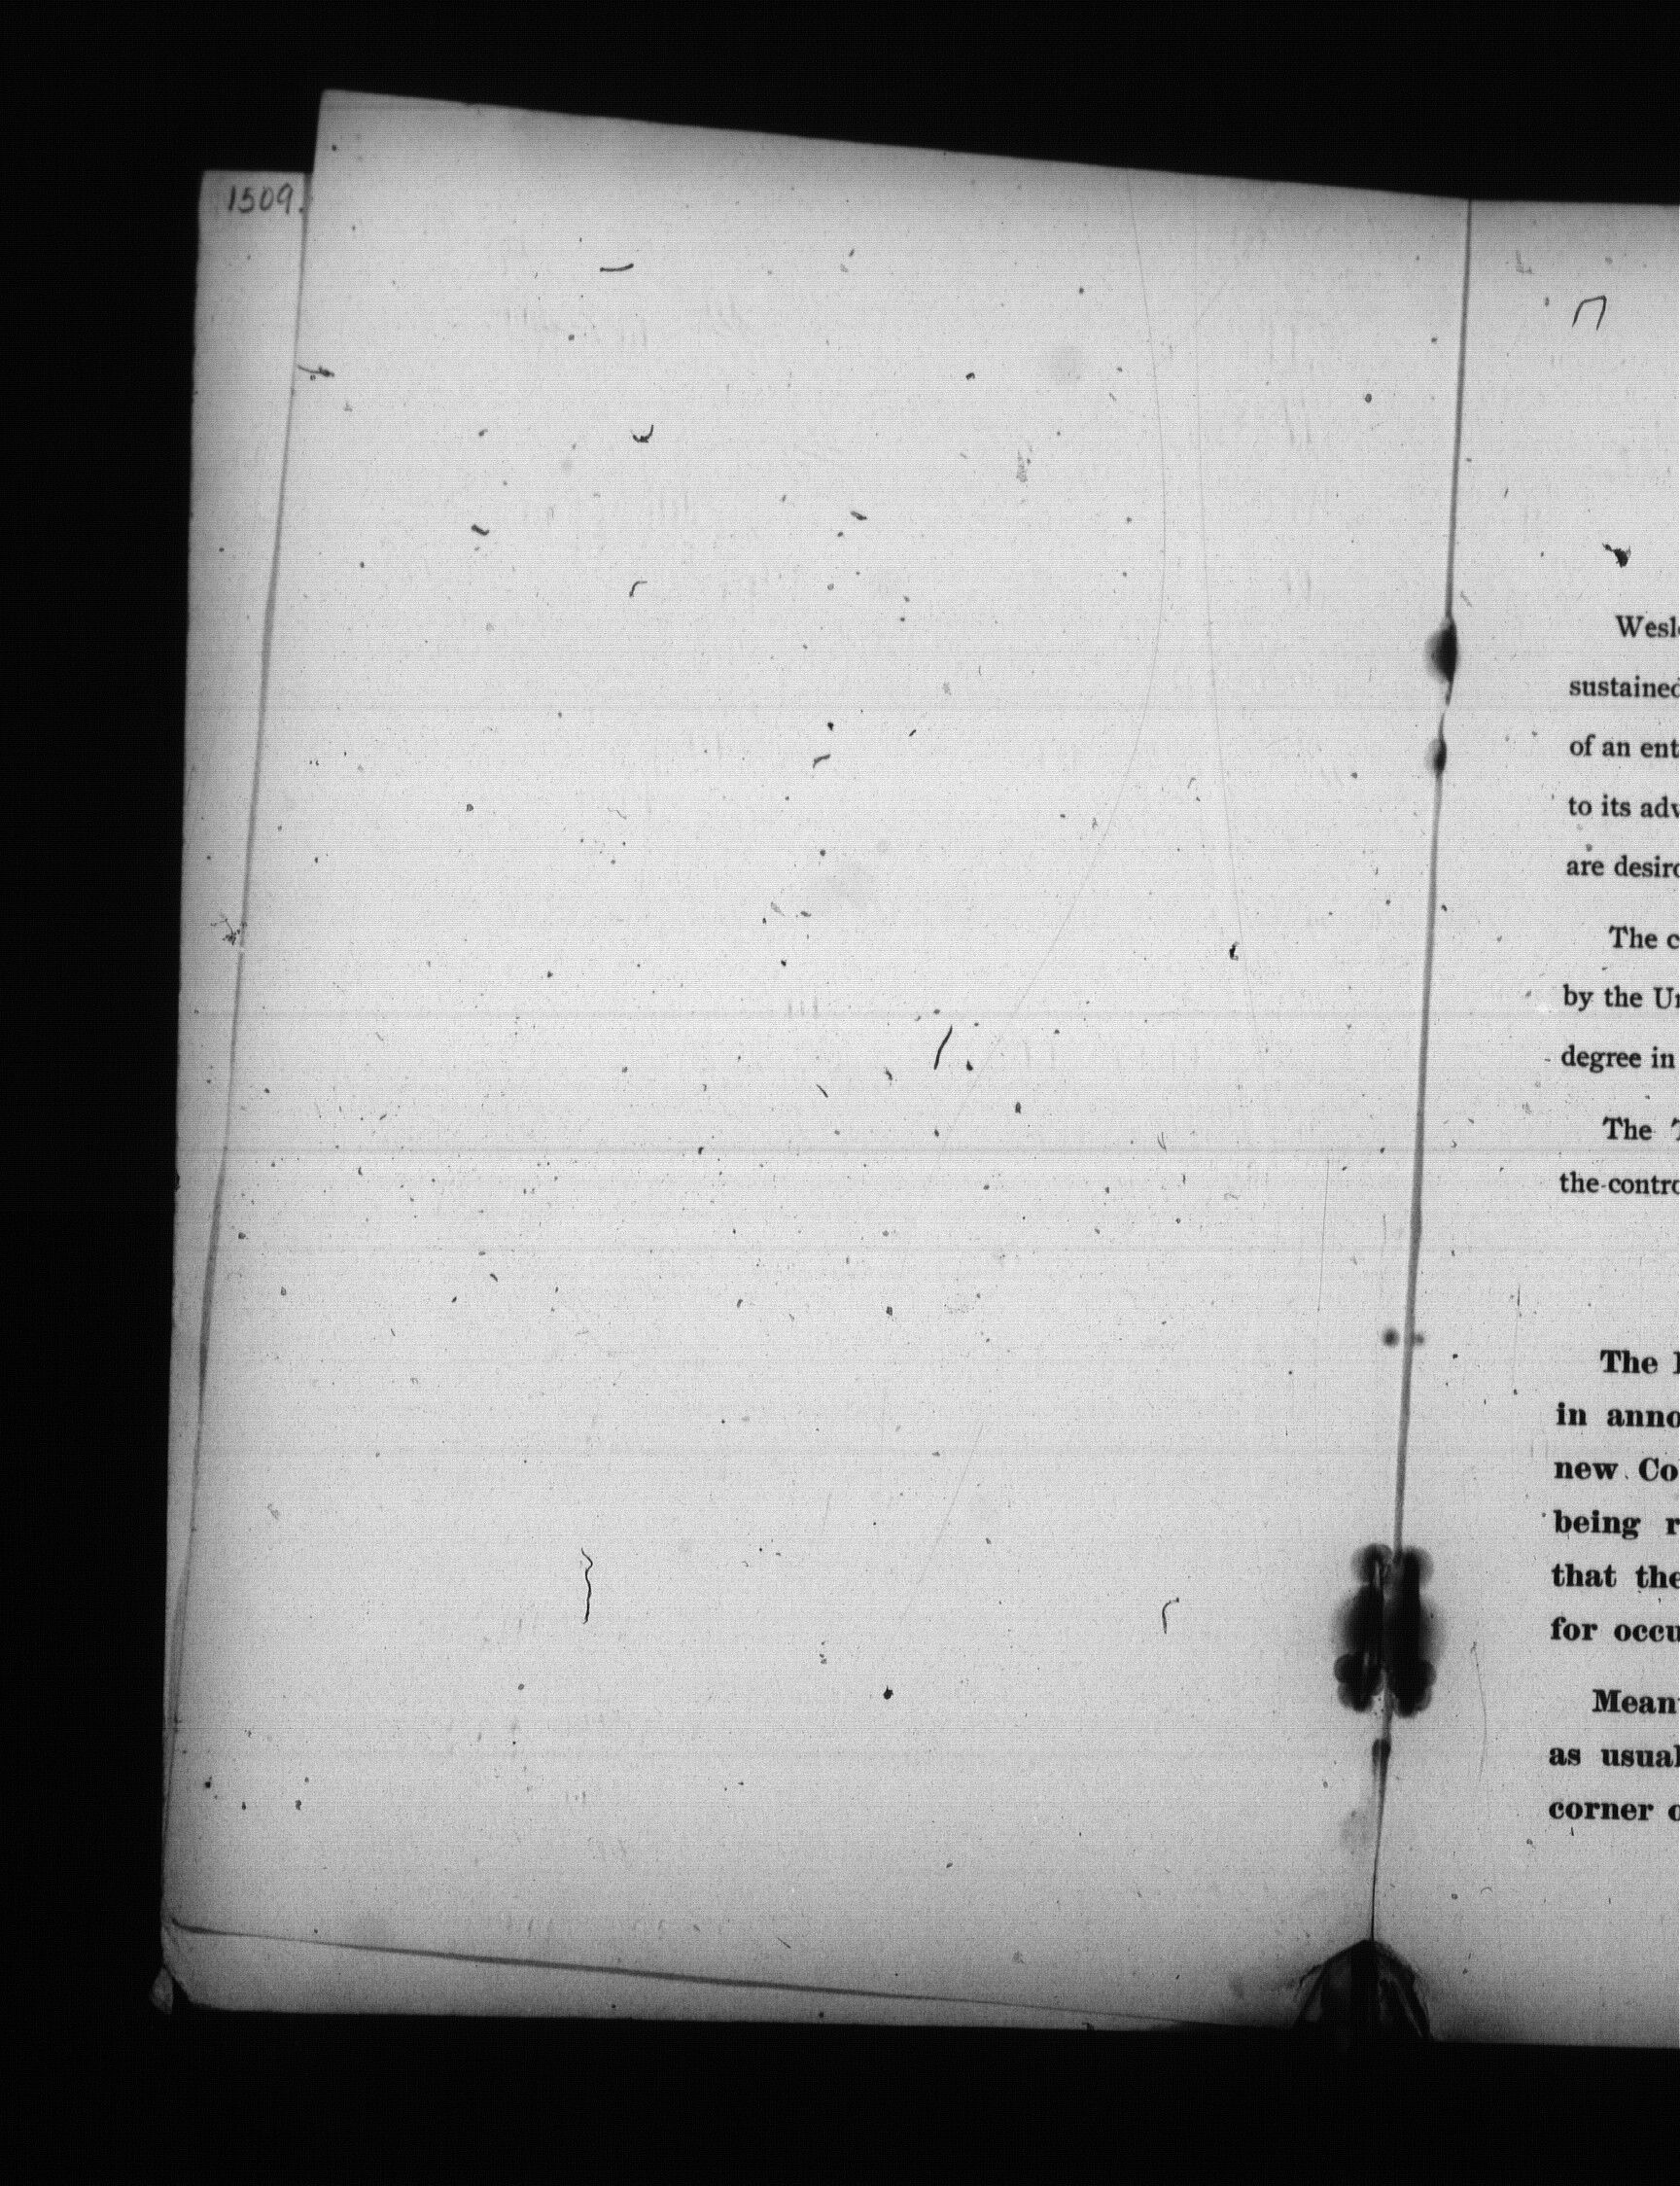 1509.
Wesl
sustained
of an ent
to its adv
are desir
The c
by the U
degree in
The
the contro
The
in anno
new Co
being r
that the
for occu
Mean
as usual
corner o